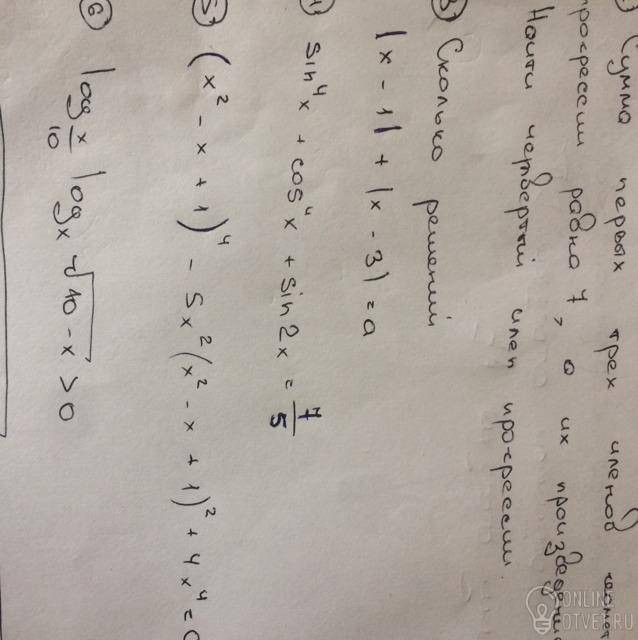 Сумма первых трех членов
равна 7, а их
Найти четвертый член прогрессии.
3) Сколько решений
|x - 1| + |x - 3| = a
4) sin⁴x + cos⁴x + sin 2x = 7/5
5) (x² - x + 1)⁴ - 5x²(x² - x + 1)² + 4x⁴ =
6) log x/10 log x √10 - x > 0
ONLINE
OTVET.RU